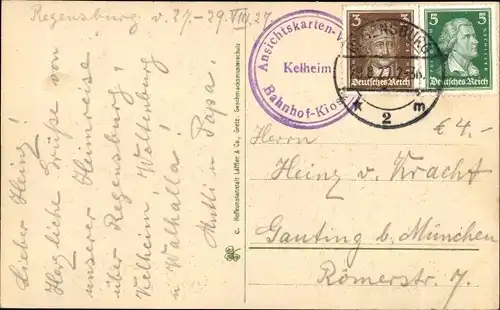 Regensburg v. 27.-29. VIII. 27.
Lieber Heinz!
Herzliche Grüße von
unserer Heimreise
über Regensburg,
Kelheim, Weltenburg
u. Walhalla!
Mutti u. Papa.
C. Hofkunstanstalt Löffler & Co., Greiz. Geschmacksmusterschutz
Ansichtskarten-V
Kelheim
Bahnhof-Kiosk
3 3
Deutsches Reich
5 5
Deutsches Reich
REGENSBURG
* 2 m
€ 4.-
Herrn
Heinz v. Kracht
Gauting b. München
Römerstr. 7.